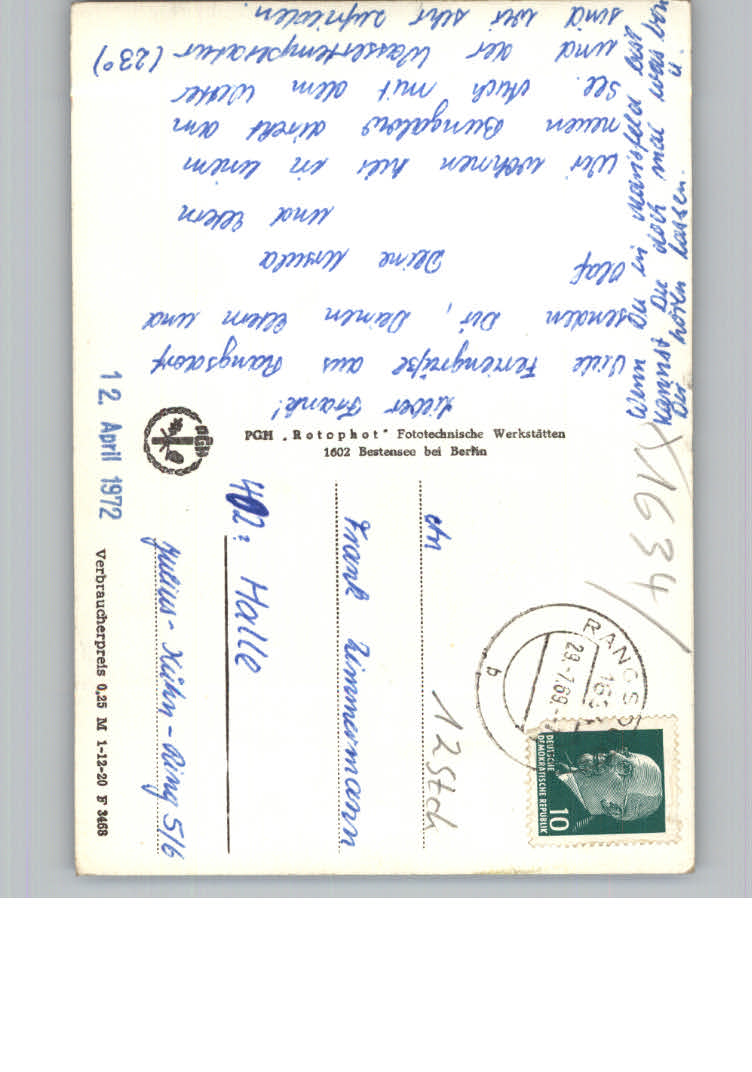 Lieber Frank!
Viele Feriengrüße aus Rangsdorf
senden Dir, Deinen Eltern und
Olaf Deine Ursula
und Eltern
Wir wohnen hier in einem
neuen Bungalow direkt am
See. Auch mit dem Wetter
und der Wassertemperatur (23°)
sind wir sehr zufrieden.
Wenn Du in Mansfeld bist
kannst Du doch mal was von
Dir hören lassen. U.
PGH „Rotophot" Fototechnische Werkstätten
1602 Bestensee bei Berlin
PGH
12. April 1972
Verbraucherpreis 0,25 M 1-12-20 F 3468
X1634/
12 Stck
RANGSD
163
29.-7.69.-
b
DEUTSCHE
DEMOKRATISCHE REPUBLIK
10
An
Frank Zimmermann
402 Halle
Julius-Kühn-Ring 5/6